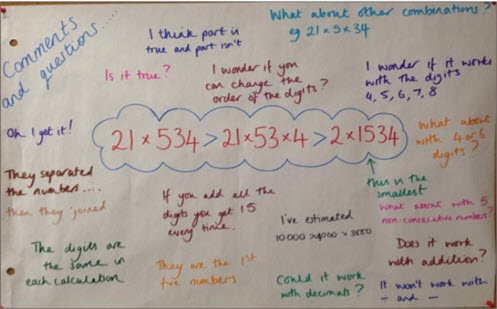 Comments
and questions.....
I think part is
true and part isn't
What about other combinations?
eg 21 × 5 × 34
Is it true?
I wonder if you
can change the
order of the digits?
I wonder if it
works
with the digits
4, 5, 6, 7, 8
Oh I get it!
21 × 534 > 21 × 53 × 4 > 2 × 1534
What about
with 4 or 6
digits?
this is the
smallest
They separated
the numbers....
then they joined
If you add all the
digits you get 15
every time.
I've estimated
10000 > 4000 > 3000
What about with 5
non-consecutive numbers?
The digits are
the same in
each calculation
They are the 1st
five numbers
Does it work
with addition?
Could it work
with decimals?
It won't work with
÷ and —